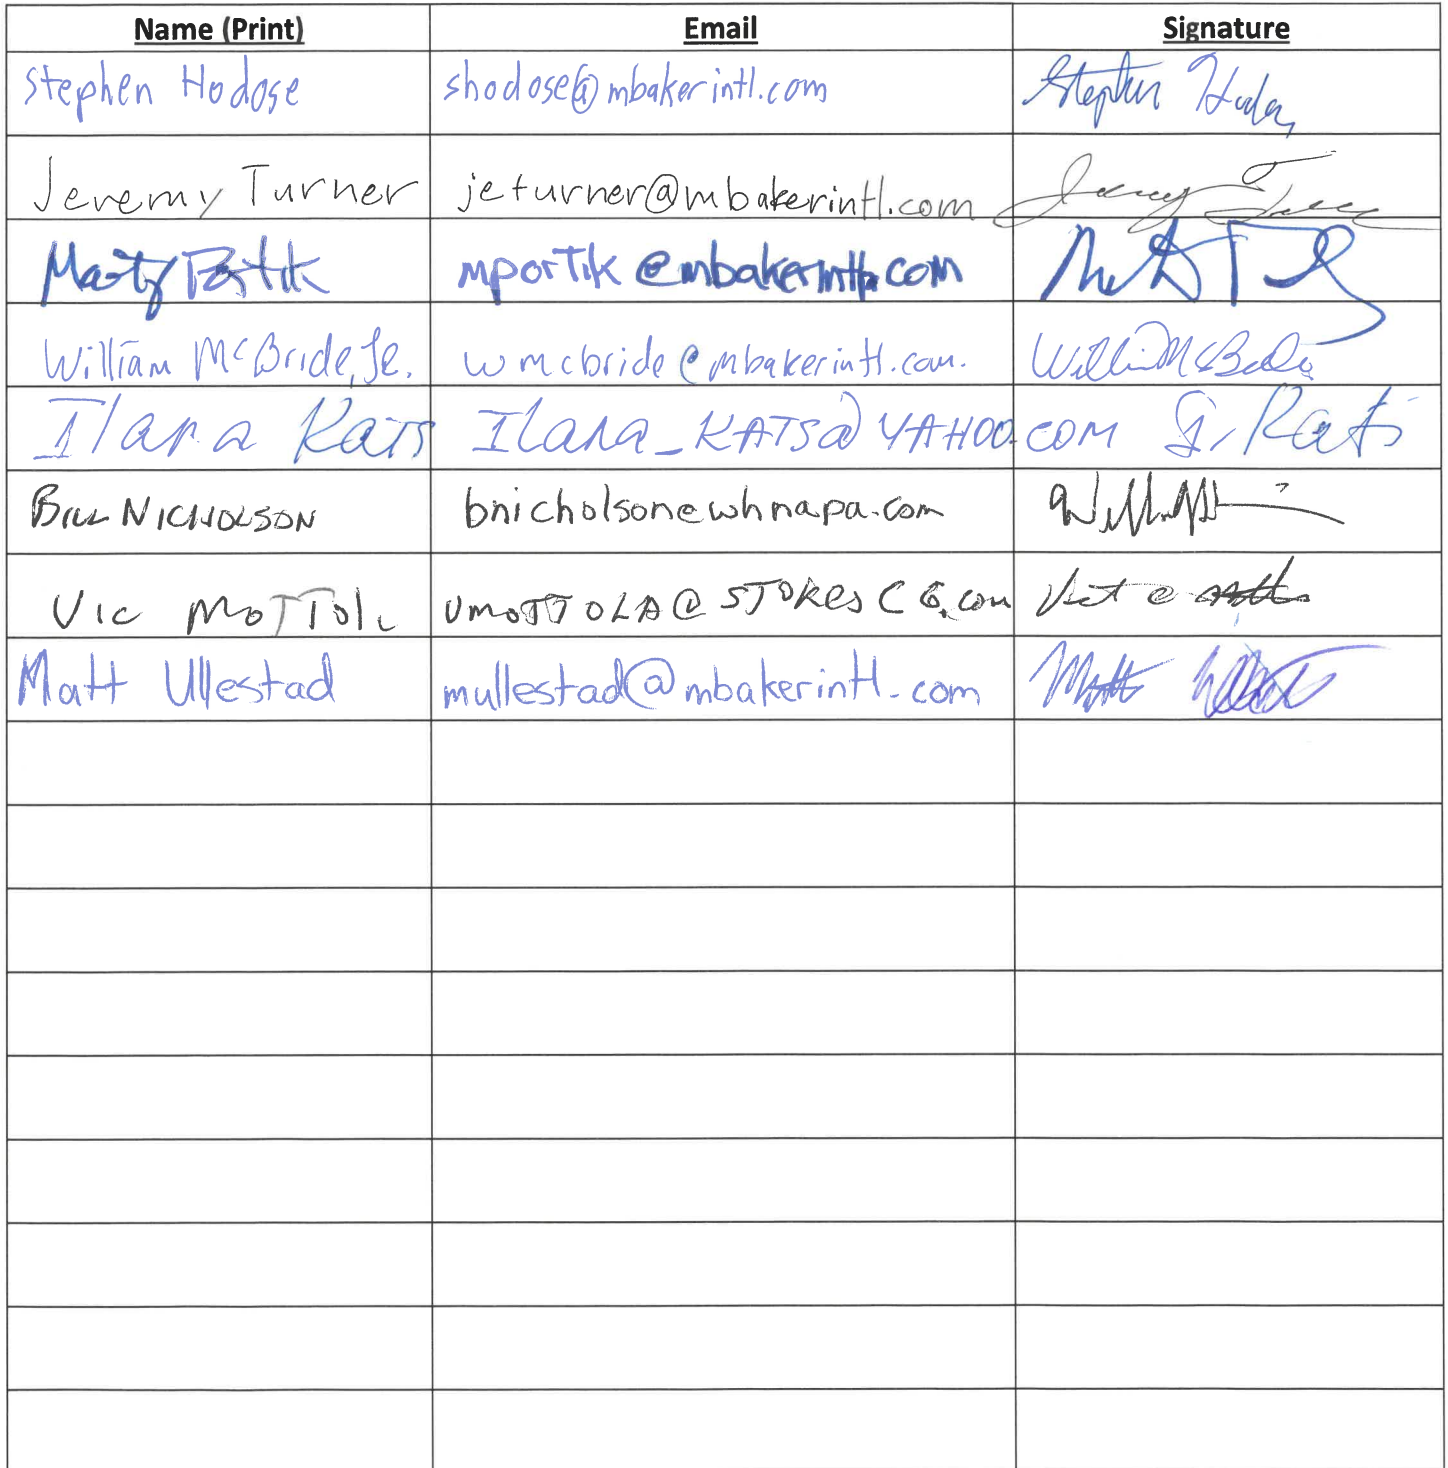 Name (Print) Email Signature
Stephen Hodose shodose@mbakerintl.com Stephen Hodose
Jeremy Turner jeturner@mbakerintl.com Jeremy Turner
Marty Portik mportik@mbakerintl.com
William McBride, Jr. wmcbride@mbakerintl.com. William McBride
Ilana Kats Ilana_KATS@YAHOO.COM I. Kats
BILL NICHOLSON bnicholson@whnapa.com
Vic MOTTOLA VMOTTOLA@STOKESCG.com
Matt Ullestad mullestad@mbakerintl.com Matt